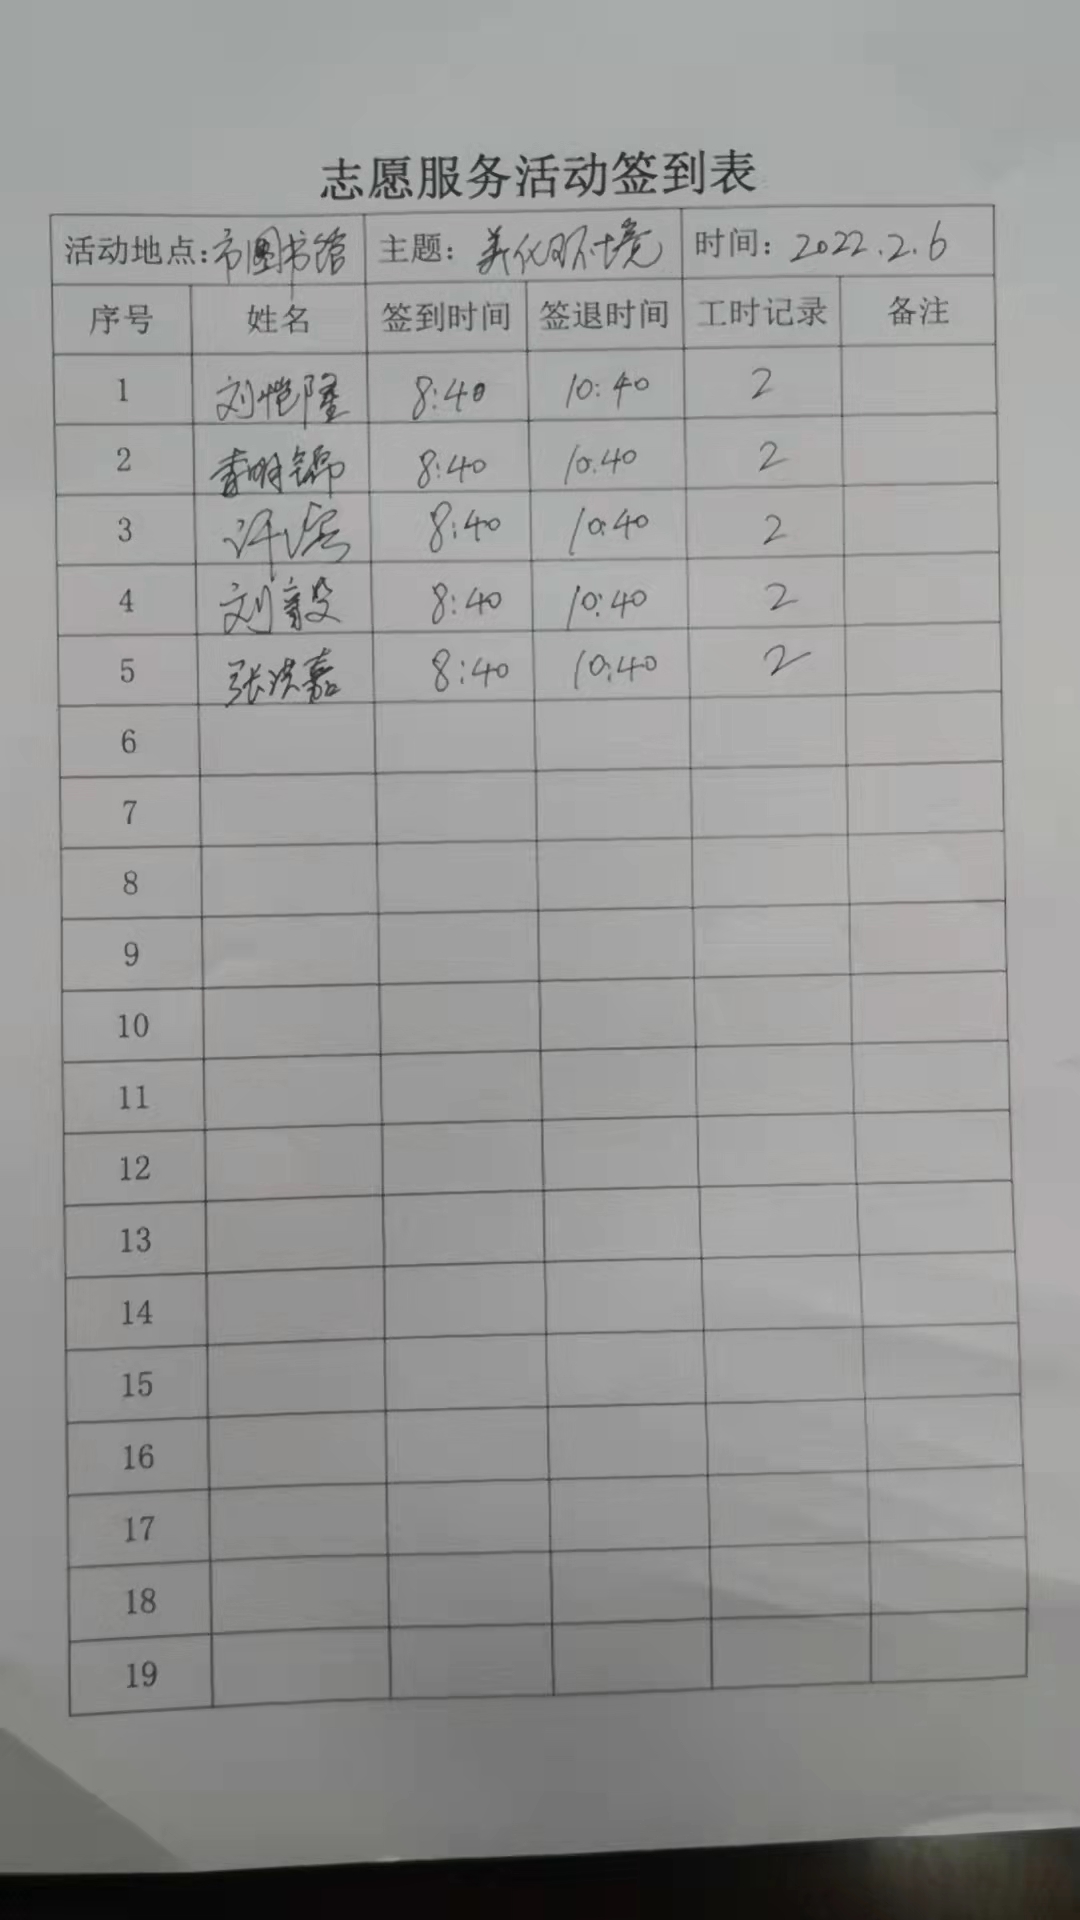 志愿服务活动签到表
活动地点:市图书馆 主题:美化环境 时间:2022.2.6
序号 姓名 签到时间 签退时间 工时记录 备注
1 刘恺隆 8:40 10:40 2
2 李明锦 8:40 10:40 2
3 许 8:40 10:40 2
4 刘毅 8:40 10:40 2
5 张洪嘉 8:40 10:40 2
6
7
8
9
10
11
12
13
14
15
16
17
18
19